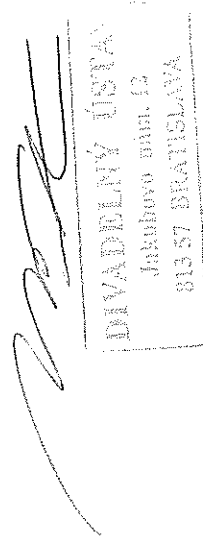 DIVADELNÝ ÚSTAV
Jakubovo nám. 12
813 57 BRATISLAVA